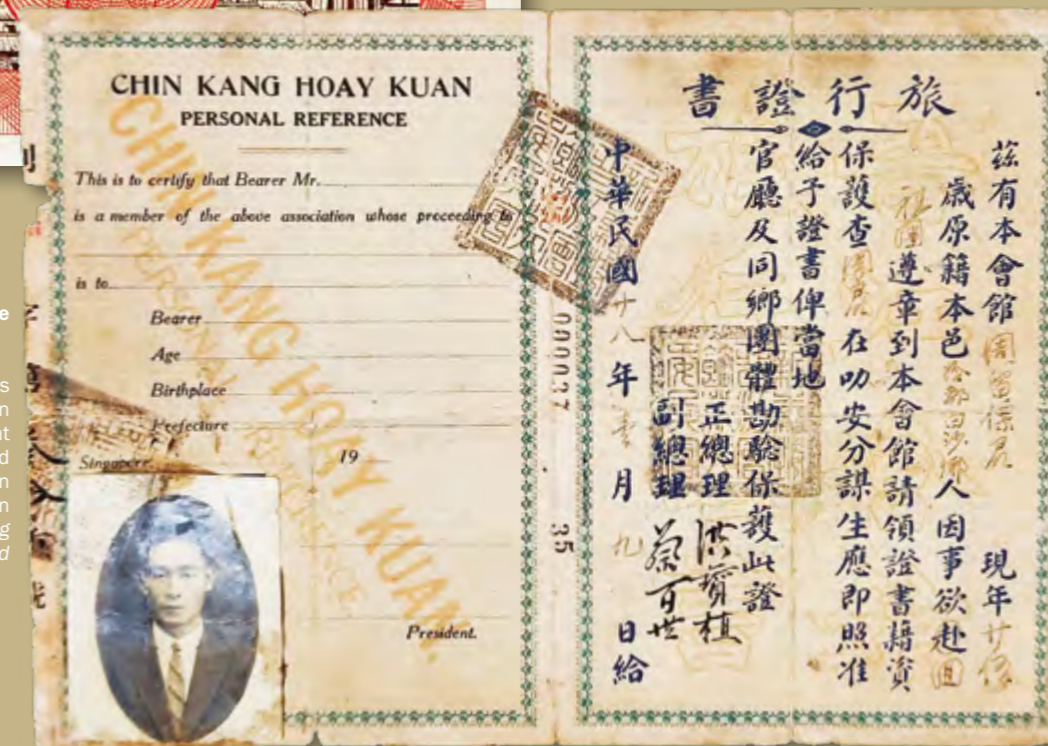 CHIN KANG HOAY KUAN
PERSONAL REFERENCE
This is to certify that Bearer Mr.
is a member of the above association whose proceeding to
is to
Bearer
Age
Birthplace
Prefecture
Singapore, 19
President.
CHIN KANG HOAY KUAN.
PERSONAL REFERENCE
000037
35
旅行證書
茲有本會館周 保君現年廿
歲原籍本邑 白沙鄉人因事欲赴回
祖國遵章到本會館請領證書藉資
保護查周君在叻安分謀生應即照准
給予證書俾當地
官廳及同鄉團體勘驗保護此證
正總理 洪寶植
副總理 蔡百世
中華民國廿八年 月九日給